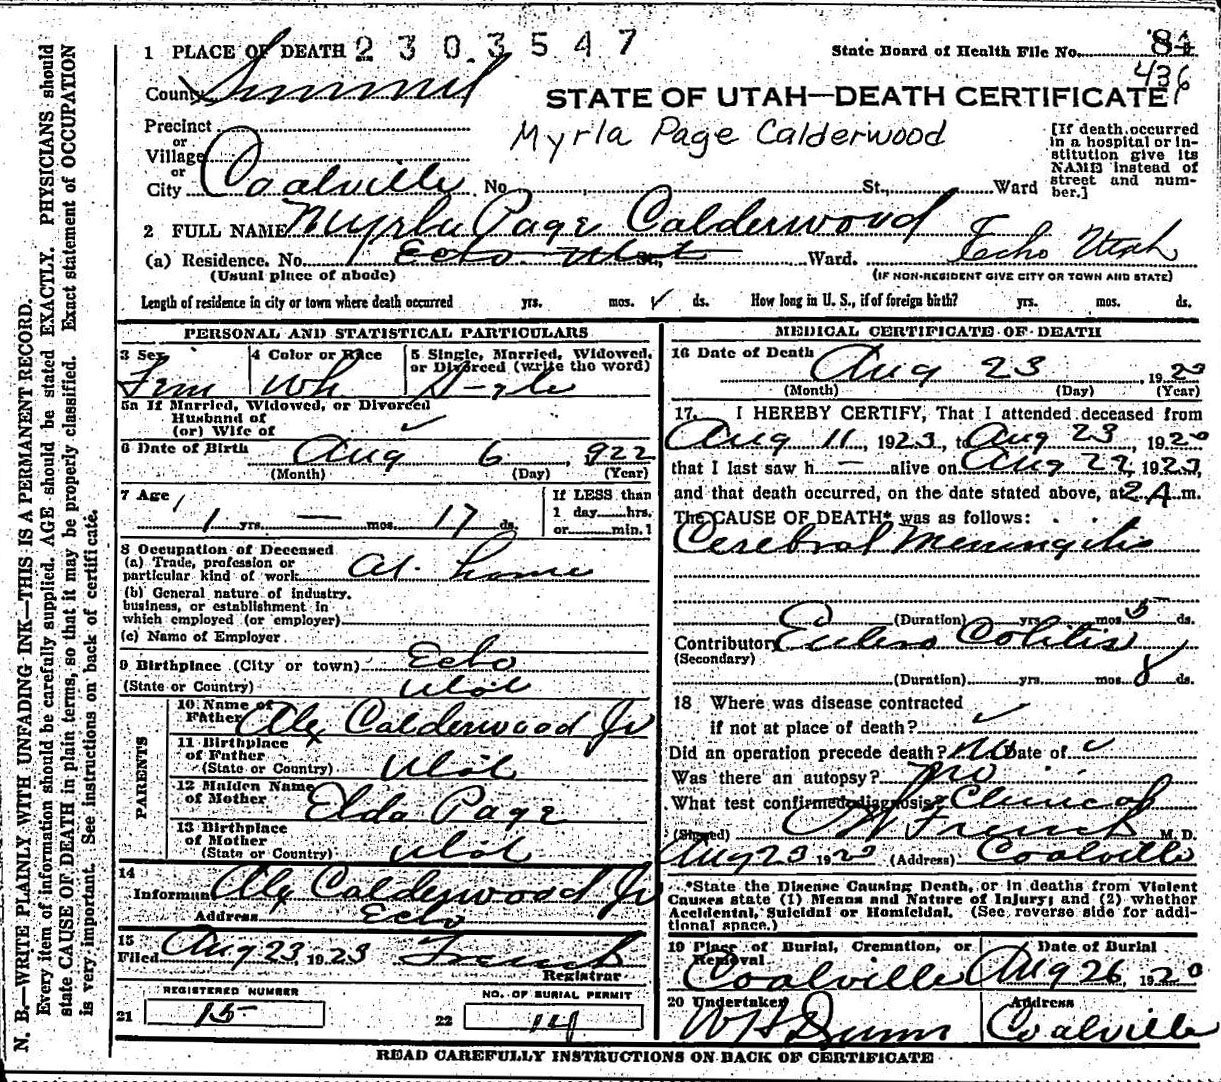 1 PLACE OF DEATH 2303547
State Board of Health File No. 84
436
County Summit
STATE OF UTAH—DEATH CERTIFICATE
Precinct
or
Village
or
City Coalville No. St., Ward
Myrla Page Calderwood
[If death occurred
in a hospital or in-
stitution give its
NAME instead of
street and num-
ber.]
2 FULL NAME Myrla Page Calderwood
(a) Residence. No. Echo Utah St., Ward. Echo Utah
(Usual place of abode)
(IF NON-RESIDENT GIVE CITY OR TOWN AND STATE)
Length of residence in city or town where death occurred yrs. mos. ds. How long in U. S., if of foreign birth? yrs. mos. ds.
PERSONAL AND STATISTICAL PARTICULARS
3 Sex
Fem
4 Color or Race
Wh
5 Single, Married, Widowed,
or Divorced (write the word)
Single
5a If Married, Widowed, or Divorced
Husband of
(or) Wife of
6 Date of Birth Aug 6, 922
(Month) (Day) (Year)
7 Age
1 yrs. — mos. 17 ds.
If LESS than
1 day hrs.
or min. 1
8 Occupation of Deceased
(a) Trade, profession or
particular kind of work At home
(b) General nature of industry,
business, or establishment in
which employed (or employer)
(c) Name of Employer
9 Birthplace (City or town) Echo
(State or Country) Utah
PARENTS
10 Name of
Father Alex Calderwood Jr
11 Birthplace
of Father
(State or Country) Utah
12 Maiden Name
of Mother Elda Page
13 Birthplace
of Mother
(State or Country) Utah
14
Informant Alex Calderwood Jr
Address Echo
15
Filed Aug 23, 1923 French
Registrar
REGISTERED NUMBER
21 15
NO. OF BURIAL PERMIT
22 14
MEDICAL CERTIFICATE OF DEATH
16 Date of Death
Aug 23, 1923
(Month) (Day) (Year)
17. I HEREBY CERTIFY, That I attended deceased from
Aug 11, 1923, to Aug 23, 1923
that I last saw h — alive on Aug 22, 1923,
and that death occurred, on the date stated above, at 2 A m.
The CAUSE OF DEATH* was as follows:
Cerebral Meningitis
(Duration) yrs. mos. 5 ds.
Contributory Entero Colitis
(Secondary)
(Duration) yrs. mos. 8 ds.
18 Where was disease contracted
if not at place of death?
Did an operation precede death? no Date of
Was there an autopsy? no
What test confirmed diagnosis? Clinical
(Signed) French M. D.
Aug 23 1923 (Address) Coalville
*State the Disease Causing Death, or in deaths from Violent
Causes state (1) Means and Nature of Injury; and (2) whether
Accidental, Suicidal or Homicidal. (See reverse side for addi-
tional space.)
19 Place of Burial, Cremation, or
Removal
Coalville
Date of Burial
Aug 26, 1923
20 Undertaker
W H Dunn
Address
Coalville
READ CAREFULLY INSTRUCTIONS ON BACK OF CERTIFICATE
N. B.—WRITE PLAINLY WITH UNFADING INK—THIS IS A PERMANENT RECORD.
Every item of information should be carefully supplied. AGE should be stated EXACTLY. PHYSICIANS should
state CAUSE OF DEATH in plain terms, so that it may be properly classified. Exact statement of OCCUPATION
is very important. See instructions on back of certificate.